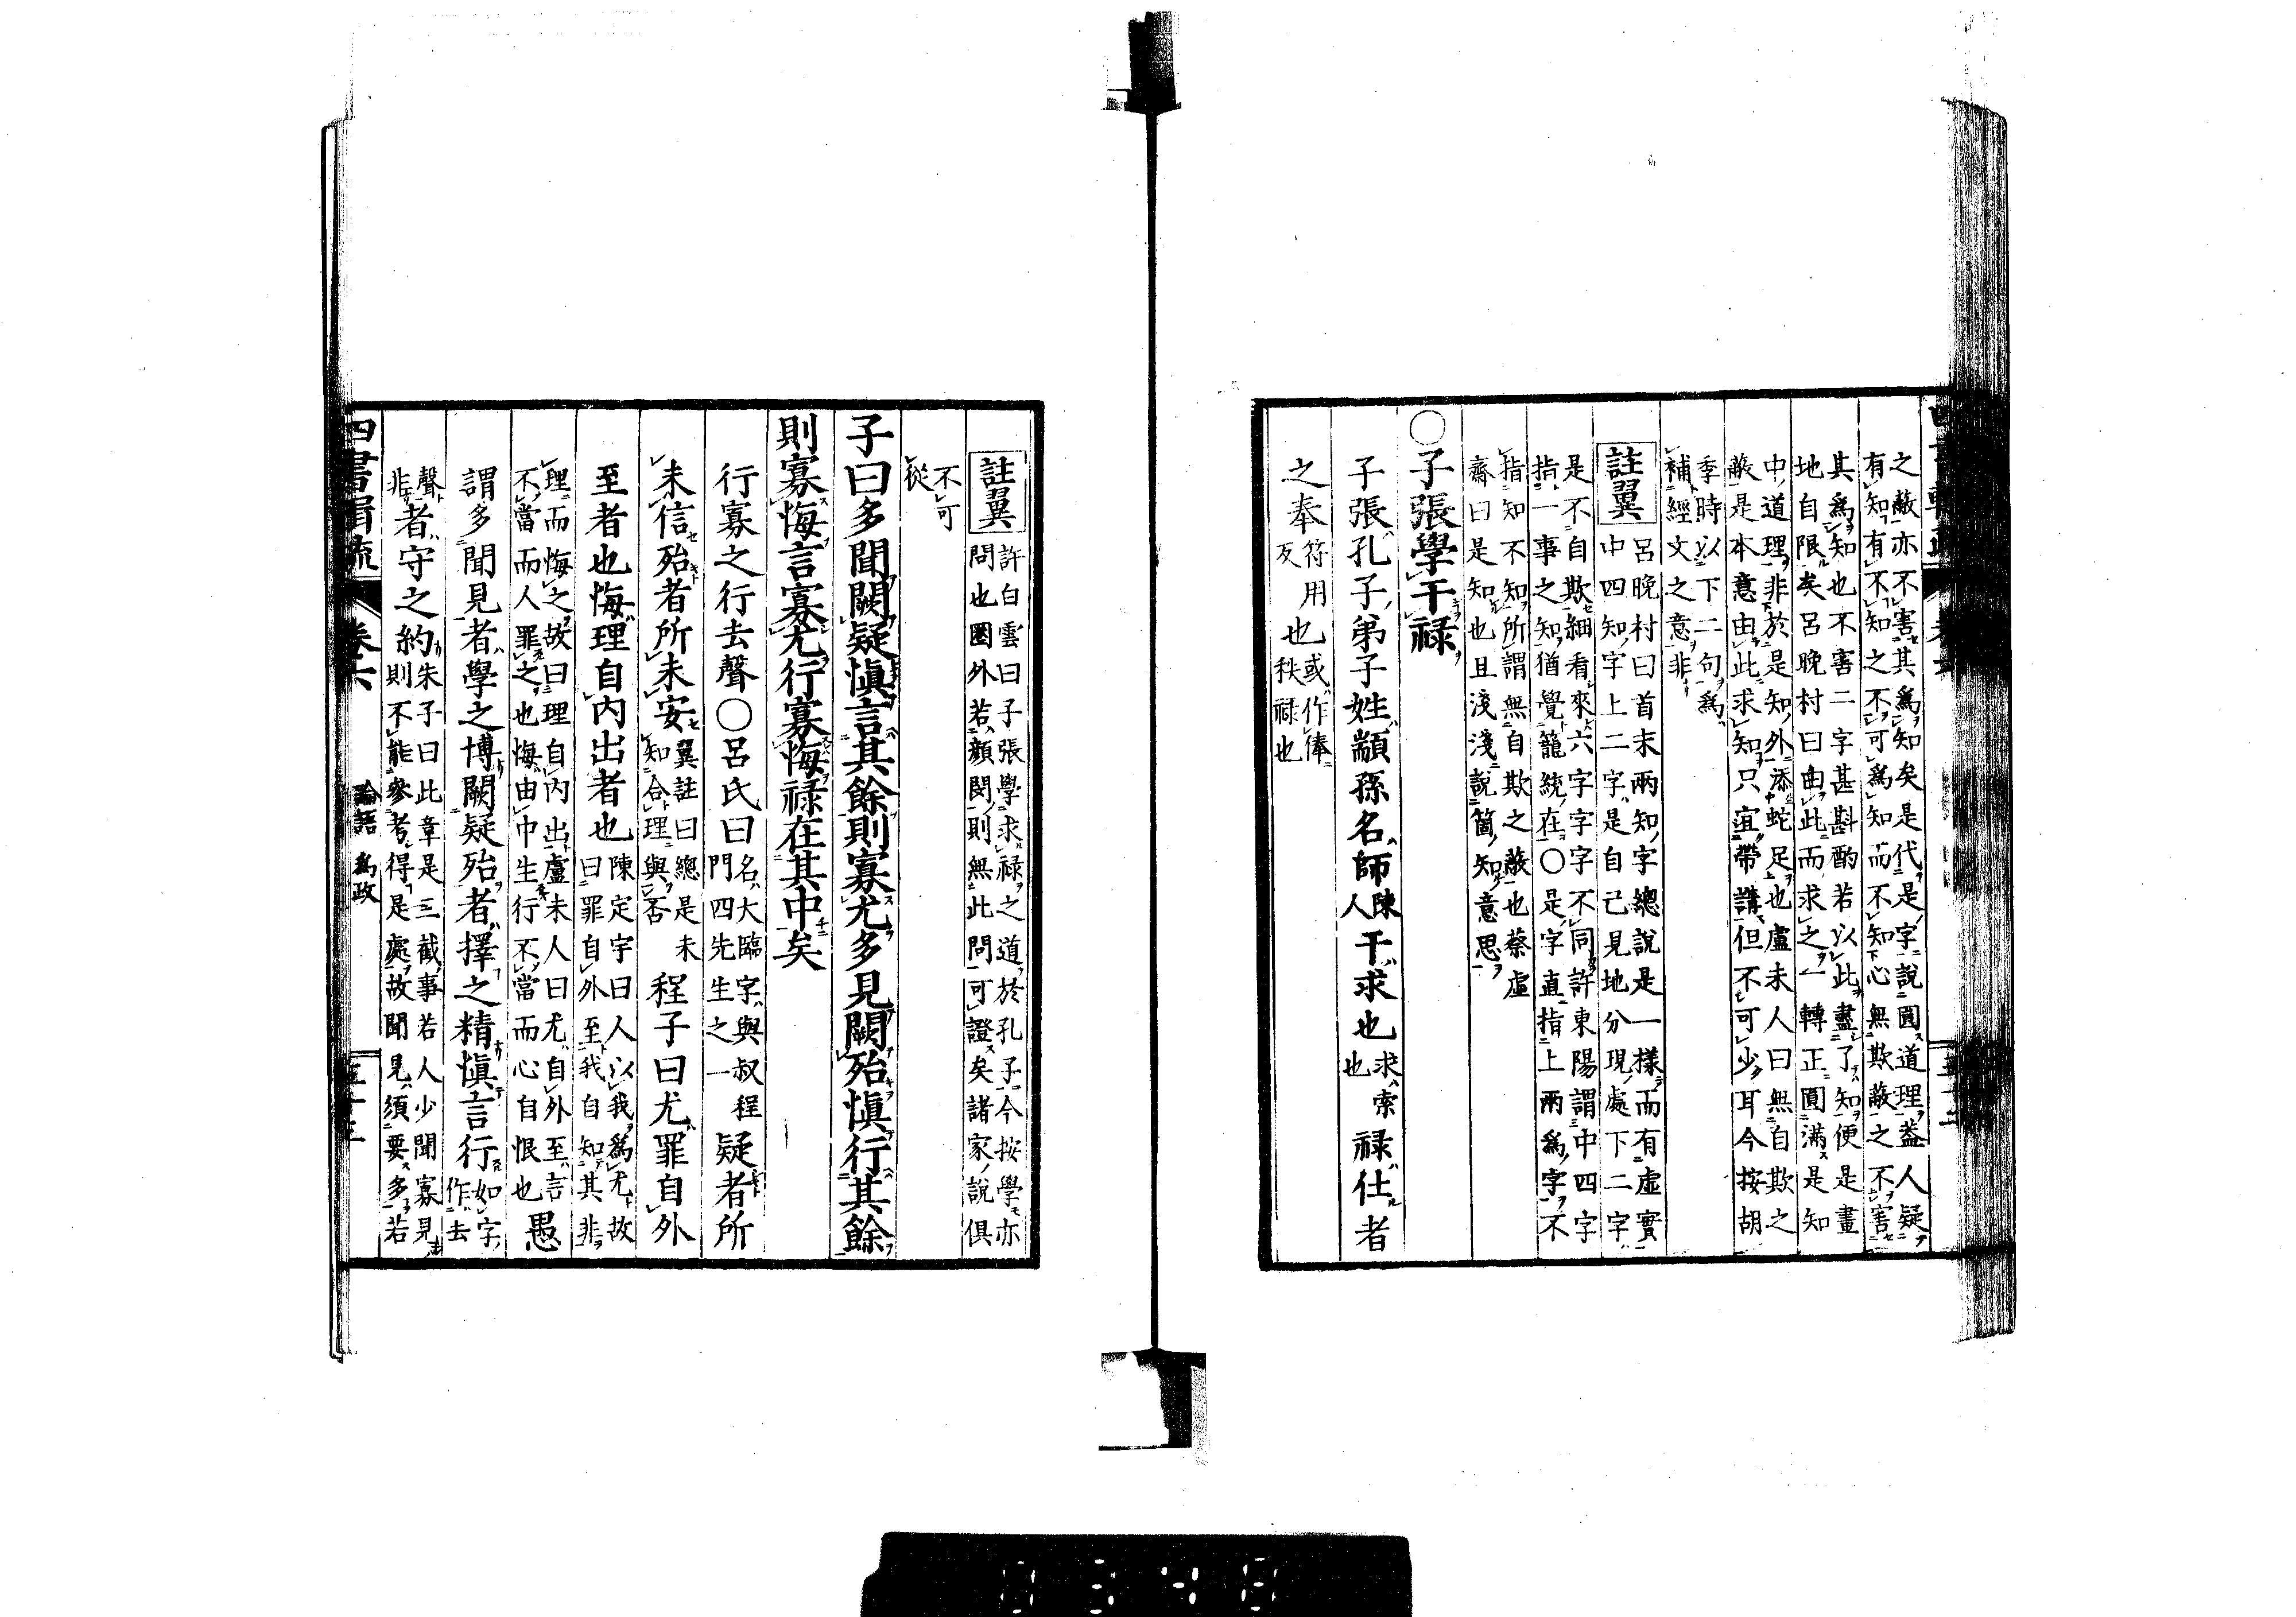 之蔽亦不害其爲知矣是代是字說圓道理蓋人疑
有知有不知之不可爲知而不知心無欺蔽之不害
其爲知也不害二字甚斟酌若以此盡了知便是畫
地自限矣呂晚村曰由此而求之一轉正圓滿是知
中道理非於是知外添蛇足也盧未人曰無自欺之
蔽是本意由此求知只宜帶講但不可少耳今按胡
季時以下二句爲
補經文之意非
註翼
呂晚村曰首末兩知字總說是一樣而有虛實
中四知字上二字是自己見地分現處下二字
是不自欺細看來六字字字不同許東陽謂中四字
指一事之知猶覺籠統在○是字直指上兩爲字不
指知不知所謂無自欺之蔽也蔡虛
齋曰是知也且淺淺說箇知意思
○子張學干祿
子張孔子弟子姓顓孫名師陳人干求也求索也祿仕者
之奉符用反也或作俸秩祿也
註翼
許白雲曰子張學求祿之道於孔子今按學亦
問也圈外若顏閔則無此問可證矣諸家說俱
不可
從
子曰多聞闕疑愼言其餘則寡尤多見闕殆愼行其餘
則寡悔言寡尤行寡悔祿在其中矣
行寡之行去聲○呂氏曰名大臨字與叔程門四先生之一疑者所
未信殆者所未安翼註曰總是未知合理與否程子曰尤罪自外
至者也悔理自內出者也陳定宇曰人以我爲尤故曰罪自外至我自知其非
理而悔之故曰理自內出盧未人曰尤自外至言
不當而人罪之也悔由中生行不當而心自恨也愚
謂多聞見者學之博闕疑殆者擇之精愼言行如字作去
聲非者守之約朱子曰此章是三截事若人少聞寡見則不能參考得是處故聞見須要多若
四書 疏 卷六 論語 爲政